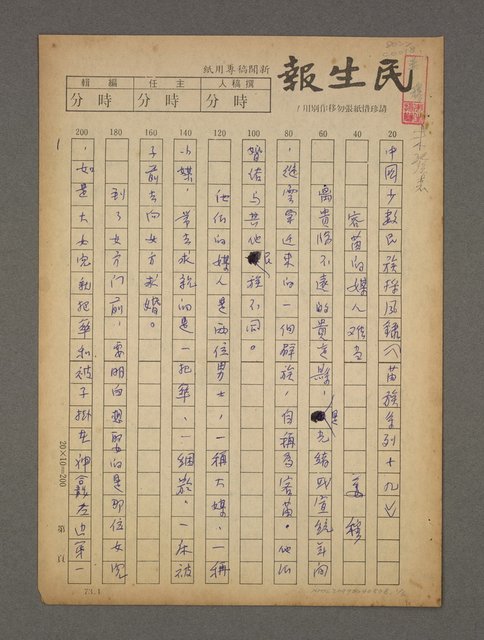 民生報
新聞稿專用紙
撰稿人 主任 編輯
時 分 時 分 時 分
請珍惜紙張勿移作別用!
20 40 60 80 100 120 140 160 180 200
中國少數民族採風錄(苗族系列十九)
客苗的媒人難當
離貴陽不遠的貴定縣,是光緒或宣統年間
,從雲南近來的一個群族,自稱為客苗。他們
婚俗與其他民族不同。
他們的媒人是兩位男士,一稱大媒,一稱
小媒,帶去求親的是一把傘、一綑菸,一床被
子前去向女方求婚。
到了女方門前,要明白想娶的是那位女兒
,如是大女兒就把傘和被子掛在神龕左邊第一
20×10=200
第 頁
73.1